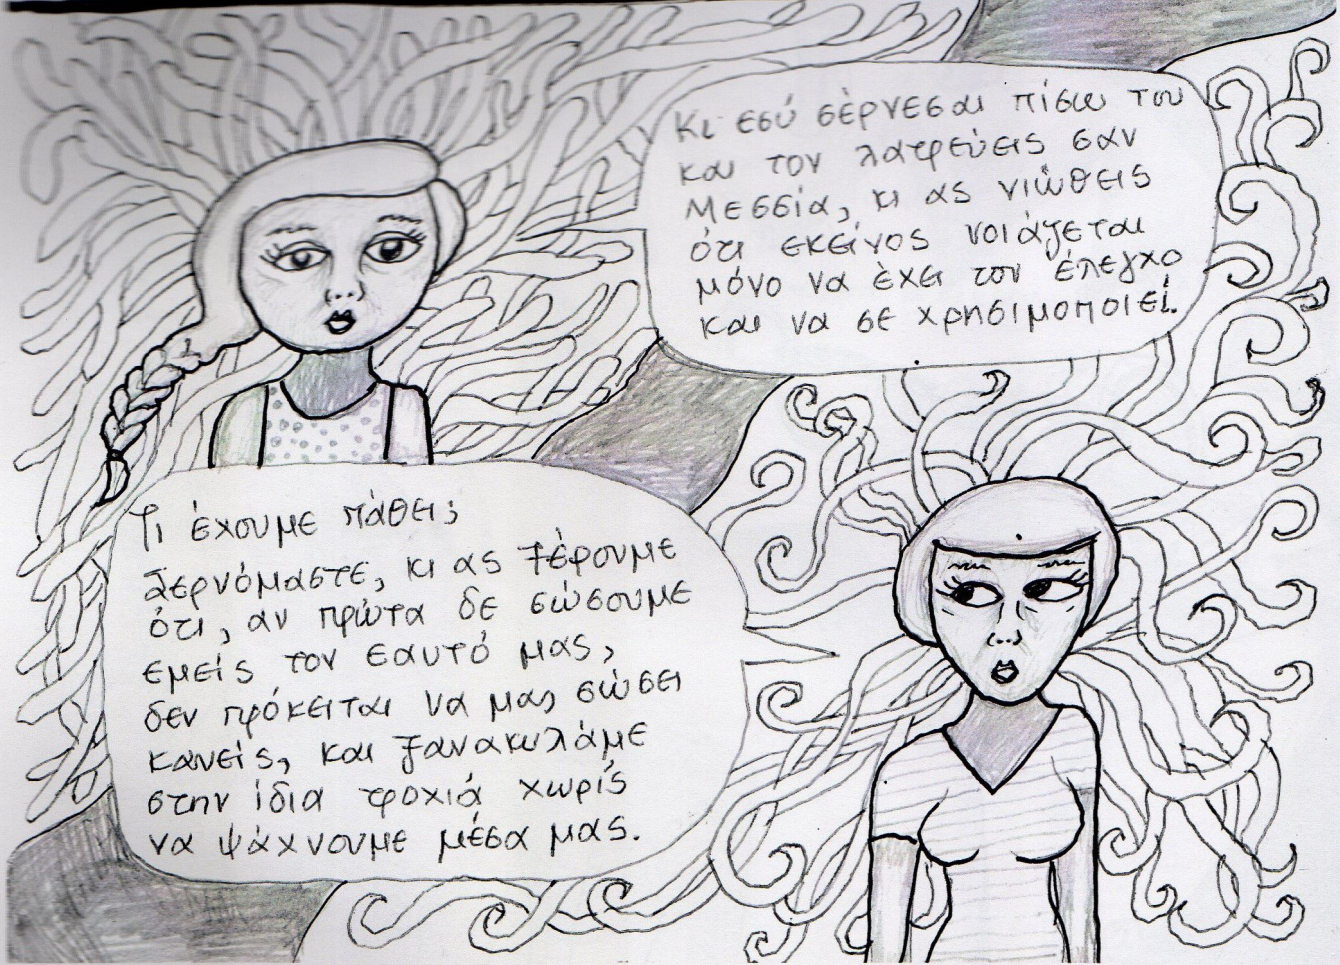 Κι εσύ σέρνεσαι πίσω του
και τον λατρεύεις σαν
Μεσσία, κι ας νιώθεις
ότι εκείνος νοιάζεται
μόνο να έχει τον έλεγχο
και να σε χρησιμοποιεί.
Τι έχουμε πάθει;
Σερνόμαστε, κι ας ξέρουμε
ότι, αν πρώτα δε σώσουμε
εμείς τον εαυτό μας,
δεν πρόκειται να μας σώσει
κανείς, και ξανακυλάμε
στην ίδια τροχιά χωρίς
να ψάχνουμε μέσα μας.